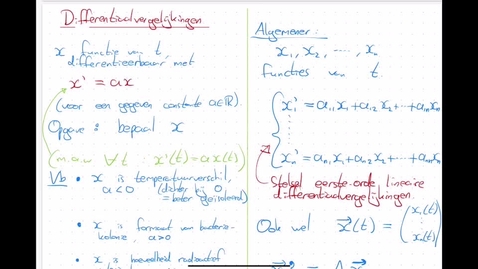 Differentiaalvergelijkingen
x functie van t,
differentieerbaar met
x' = ax
(voor een gegeven constante a∈ℝ).
Opgave: bepaal x
(m.a.w. ∀t : x'(t)=ax(t))
Vb • x is temperatuurverschil,
a<0 (dichter bij 0 = beter geïsoleerd)
• x is formaat van bacterie-
kolonie, a>0
• x is hoeveelheid radioactief
Algemener:
x₁, x₂, ..., xₙ
functies van t.
x₁' = a₁₁x₁+a₁₂x₂+...+a₁ₙxₙ
xₙ' = aₙ₁x₁+aₙ₂x₂+...+aₙₙxₙ
Stelsel eerste-orde lineaire
differentiaalvergelijkingen.
Ook wel x⃗(t) = (x₁(t) ⋮ xₙ(t))